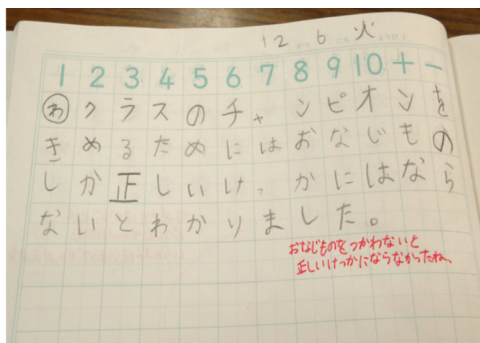 12 6 火
1 2 3 4 5 6 7 8 9 10 + −
わクラスのチャンピオンを
きめるためにはおなじもの
しか正しいけっかにはなら
ないとわかりました。
おなじものをつかわないと
正しいけっかにならなかったね。